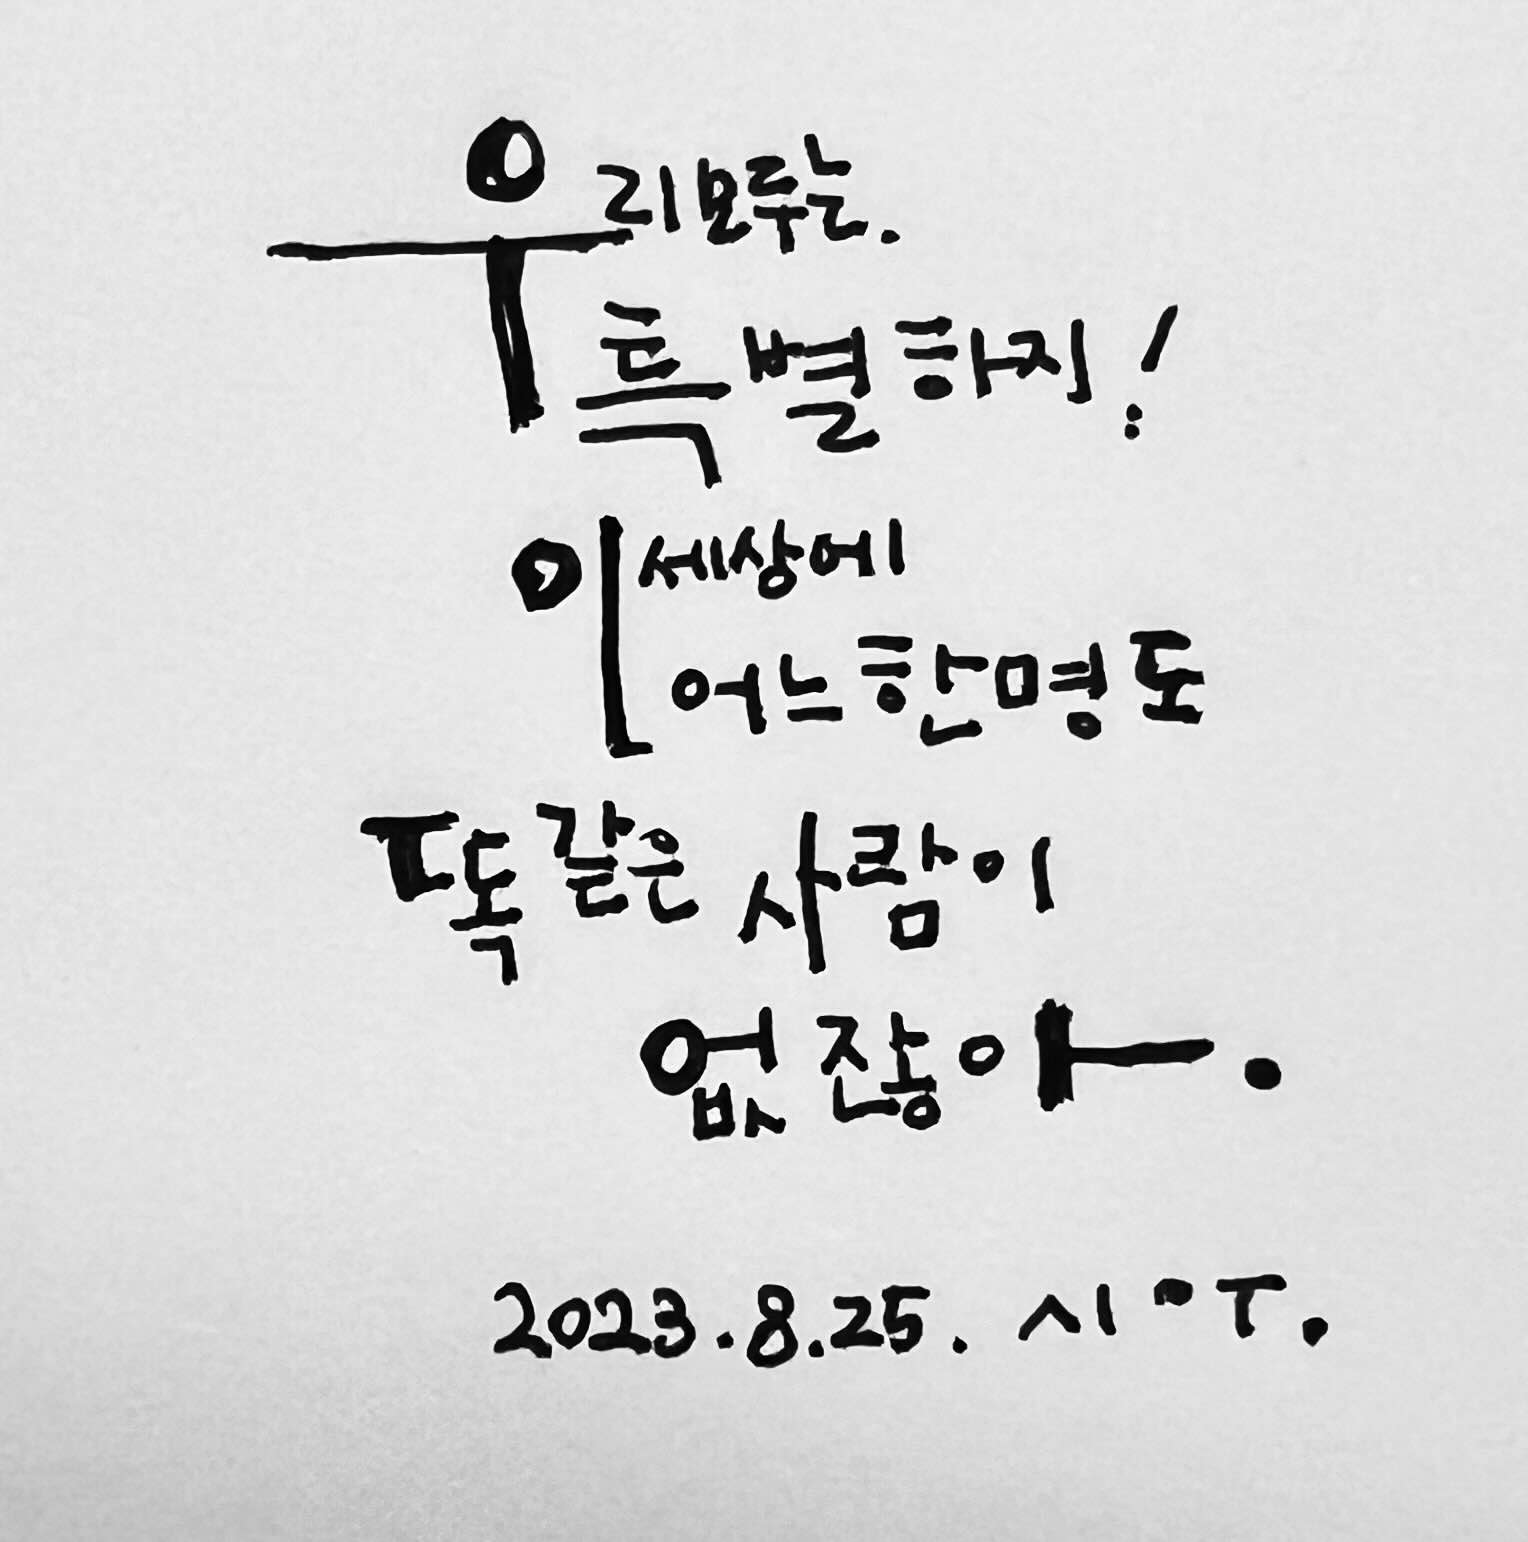 우리모두는.
특별하지!
이세상에
어느한명도
똑같은 사람이
없잖아.
2023.8.25. 시ㅇㅜ.